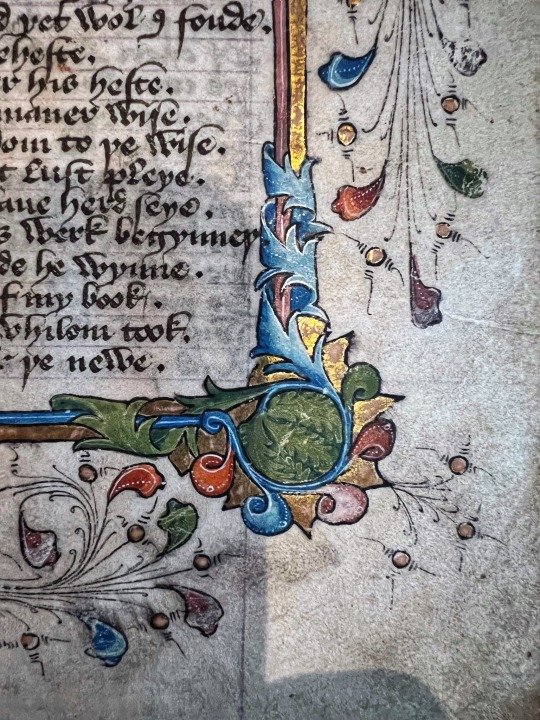 d yet wol I fonde.
eheste.
r his heste.
maner wise.
om to þe wise.
t lust pleye.
aue herd seye.
s werk begynneþ
de he wynne.
f my book.
whilom took.
r þe newe.